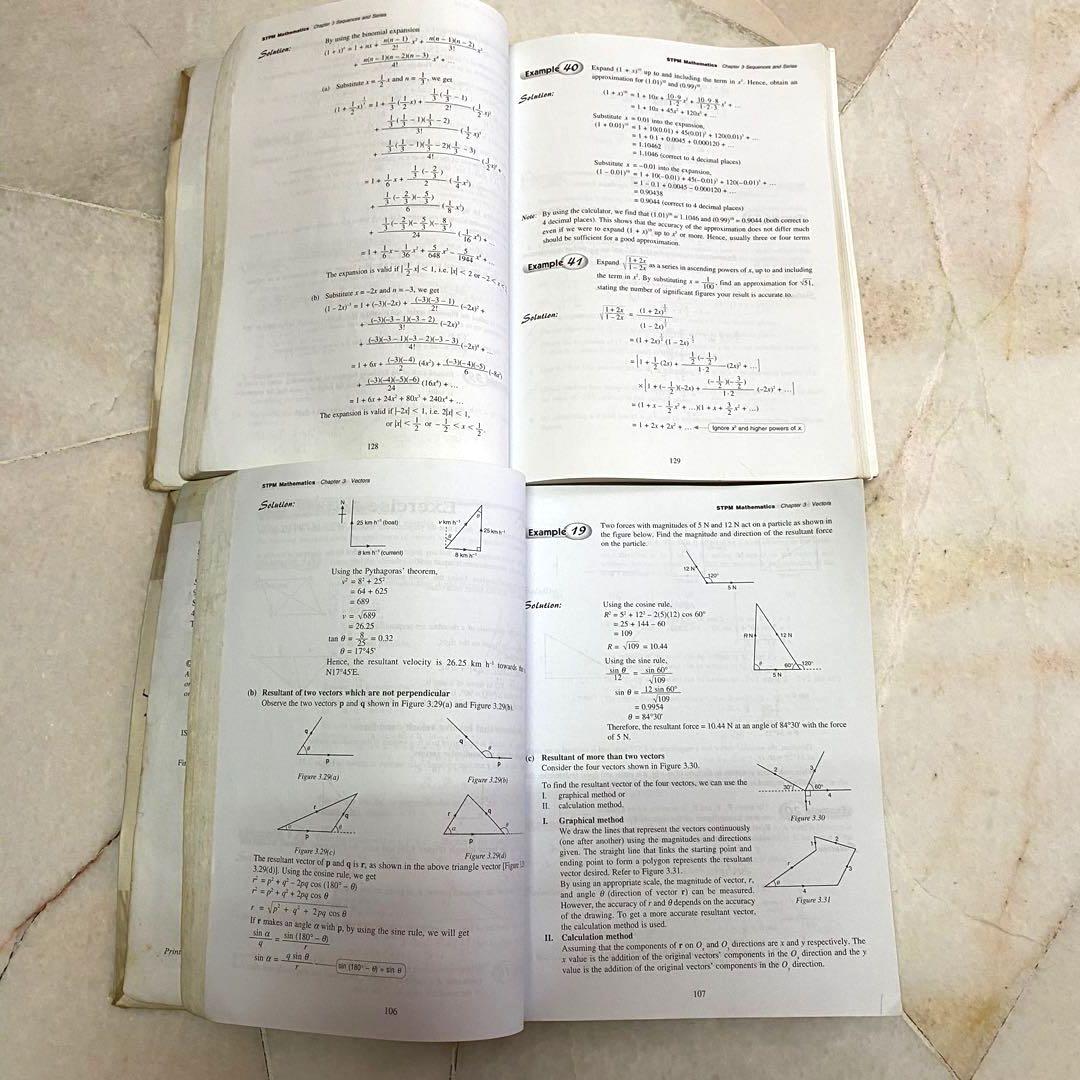 STPM Mathematics Chapter 3 Sequences and Series
Solution:
By using the binomial expansion
(1 + x)ⁿ = 1 + nx + n(n – 1)/2! x² + n(n – 1)(n – 2)/3! x³
+ n(n – 1)(n – 2)(n – 3)/4! x⁴ + ...
(a) Substitute x = 1/2 x and n = 1/3, we get
(1 + 1/2 x)^(1/3) = 1 + 1/3 (1/2 x) + 1/3(1/3 – 1)/2! (1/2 x)²
+ 1/3(1/3 – 1)(1/3 – 2)/3! (1/2 x)³
+ 1/3(1/3 – 1)(1/3 – 2)(1/3 – 3)/4! (1/2 x)⁴ +
= 1 + 1/6 x + 1/3(–2/3)/2 (1/4 x²)
+ 1/3(–2/3)(–5/3)/6 (1/8 x³)
+ 1/3(–2/3)(–5/3)(–8/3)/24 (1/16 x⁴) + ...
= 1 + 1/6 x – 1/36 x² + 5/648 x³ – 5/1944 x⁴ + ...
The expansion is valid if |1/2 x| < 1, i.e. |x| < 2 or –2 < x <
(b) Substitute x = –2x and n = –3, we get
(1 – 2x)⁻³ = 1 + (–3)(–2x) + (–3)(–3 – 1)/2! (–2x)² +
+ (–3)(–3 – 1)(–3 – 2)/3! (–2x)³
+ (–3)(–3 – 1)(–3 – 2)(–3 – 3)/4! (–2x)⁴ + ...
= 1 + 6x + (–3)(–4)/2 (4x²) + (–3)(–4)(–5)/6 (–8x³)
+ (–3)(–4)(–5)(–6)/24 (16x⁴) + ...
= 1 + 6x + 24x² + 80x³ + 240x⁴ + ...
The expansion is valid if |–2x| < 1, i.e. 2|x| < 1,
or |x| < 1/2 or –1/2 < x < 1/2.
128
STPM Mathematics Chapter 3 Sequences and Series
Example 40
Expand (1 + x)¹⁰ up to and including the term in x³. Hence, obtain an
approximation for (1.01)¹⁰ and (0.99)¹⁰.
Solution:
(1 + x)¹⁰ = 1 + 10x + 10·9/1·2 x² + 10·9·8/1·2·3 x³ + ...
= 1 + 10x + 45x² + 120x³ + ...
Substitute x = 0.01 into the expansion,
(1 + 0.01)¹⁰ = 1 + 10(0.01) + 45(0.01)² + 120(0.01)³ + ...
= 1 + 0.1 + 0.0045 + 0.000120 + ...
= 1.10462
= 1.1046 (correct to 4 decimal places)
Substitute x = –0.01 into the expansion,
(1 – 0.01)¹⁰ = 1 + 10(–0.01) + 45(–0.01)² + 120(–0.01)³ + ...
= 1 – 0.1 + 0.0045 – 0.000120 + ...
= 0.90438
= 0.9044 (correct to 4 decimal places)
Note: By using the calculator, we find that (1.01)¹⁰ = 1.1046 and (0.99)¹⁰ = 0.9044 (both correct to
4 decimal places). This shows that the accuracy of the approximation does not differ much
even if we were to expand (1 + x)¹⁰ up to x⁵ or more. Hence, usually three or four terms
should be sufficient for a good approximation.
Example 41
Expand √((1 + 2x)/(1 – 2x)) as a series in ascending powers of x, up to and including
the term in x². By substituting x = 1/100, find an approximation for √51,
stating the number of significant figures your result is accurate to.
Solution:
√((1 + 2x)/(1 – 2x)) = (1 + 2x)^(1/2)/(1 – 2x)^(1/2)
= (1 + 2x)^(1/2) (1 – 2x)^(–1/2)
= [1 + 1/2 (2x) + 1/2(–1/2)/1·2 (2x)² + ...]
× [1 + (–1/2)(–2x) + (–1/2)(–3/2)/1·2 (–2x)² + ...]
= (1 + x – 1/2 x² + ...)(1 + x + 3/2 x² + ...)
= 1 + 2x + 2x² + ... Ignore x³ and higher powers of x.
129
STPM Mathematics Chapter 3 Vectors
Solution:
N
25 km h⁻¹ (boat)
8 km h⁻¹ (current)
v km h⁻¹
θ
θ
25 km h⁻¹
8 km h⁻¹
Using the Pythagoras' theorem,
v² = 8² + 25²
= 64 + 625
= 689
v = √689
= 26.25
tan θ = 8/25 = 0.32
θ = 17°45′
Hence, the resultant velocity is 26.25 km h⁻¹ towards
N17°45′E.
(b) Resultant of two vectors which are not perpendicular
Observe the two vectors p and q shown in Figure 3.29(a) and Figure 3.29(b).
q
θ
p
q
θ
p
Figure 3.29(a)
Figure 3.29(b)
r
q
α
θ
p
r
q
α
θ
p
Figure 3.29(c)
Figure 3.29(d)
The resultant vector of p and q is r, as shown in the above triangle vector [Figure
3.29(d)]. Using the cosine rule, we get
r² = p² + q² – 2pq cos (180° – θ)
r² = p² + q² + 2pq cos θ
r = √(p² + q² + 2pq cos θ)
If r makes an angle α with p, by using the sine rule, we will get
sin α/q = sin (180° – θ)/r
sin α = q sin θ/r
sin (180° – θ) = sin θ
106
Print
STPM Mathematics Chapter 3 Vectors
Example 19
Two forces with magnitudes of 5 N and 12 N act on a particle as shown in
the figure below. Find the magnitude and direction of the resultant force
on the particle.
12 N
120°
5 N
Solution:
Using the cosine rule,
R² = 5² + 12² – 2(5)(12) cos 60°
= 25 + 144 – 60
= 109
R = √109 = 10.44
R N
12 N
θ
60°
120°
5 N
Using the sine rule,
sin θ/12 = sin 60°/√109
sin θ = 12 sin 60°/√109
= 0.9954
θ = 84°30′
Therefore, the resultant force = 10.44 N at an angle of 84°30′ with the force
of 5 N.
(c) Resultant of more than two vectors
Consider the four vectors shown in Figure 3.30.
To find the resultant vector of the four vectors, we can use the
I. graphical method or
II. calculation method.
2
3
30°
60°
4
1
Figure 3.30
I. Graphical method
We draw the lines that represent the vectors continuously
(one after another) using the magnitudes and directions
given. The straight line that links the starting point and
ending point to form a polygon represents the resultant
vector desired. Refer to Figure 3.31.
By using an appropriate scale, the magnitude of vector, r,
and angle θ (direction of vector r) can be measured.
However, the accuracy of r and θ depends on the accuracy
of the drawing. To get a more accurate resultant vector,
the calculation method is used.
1
2
3
r
θ
4
Figure 3.31
II. Calculation method
Assuming that the components of r on Oₓ and Oᵧ directions are x and y respectively. The
x value is the addition of the original vectors' components in the Oₓ direction and the y
value is the addition of the original vectors' components in the Oᵧ direction.
107